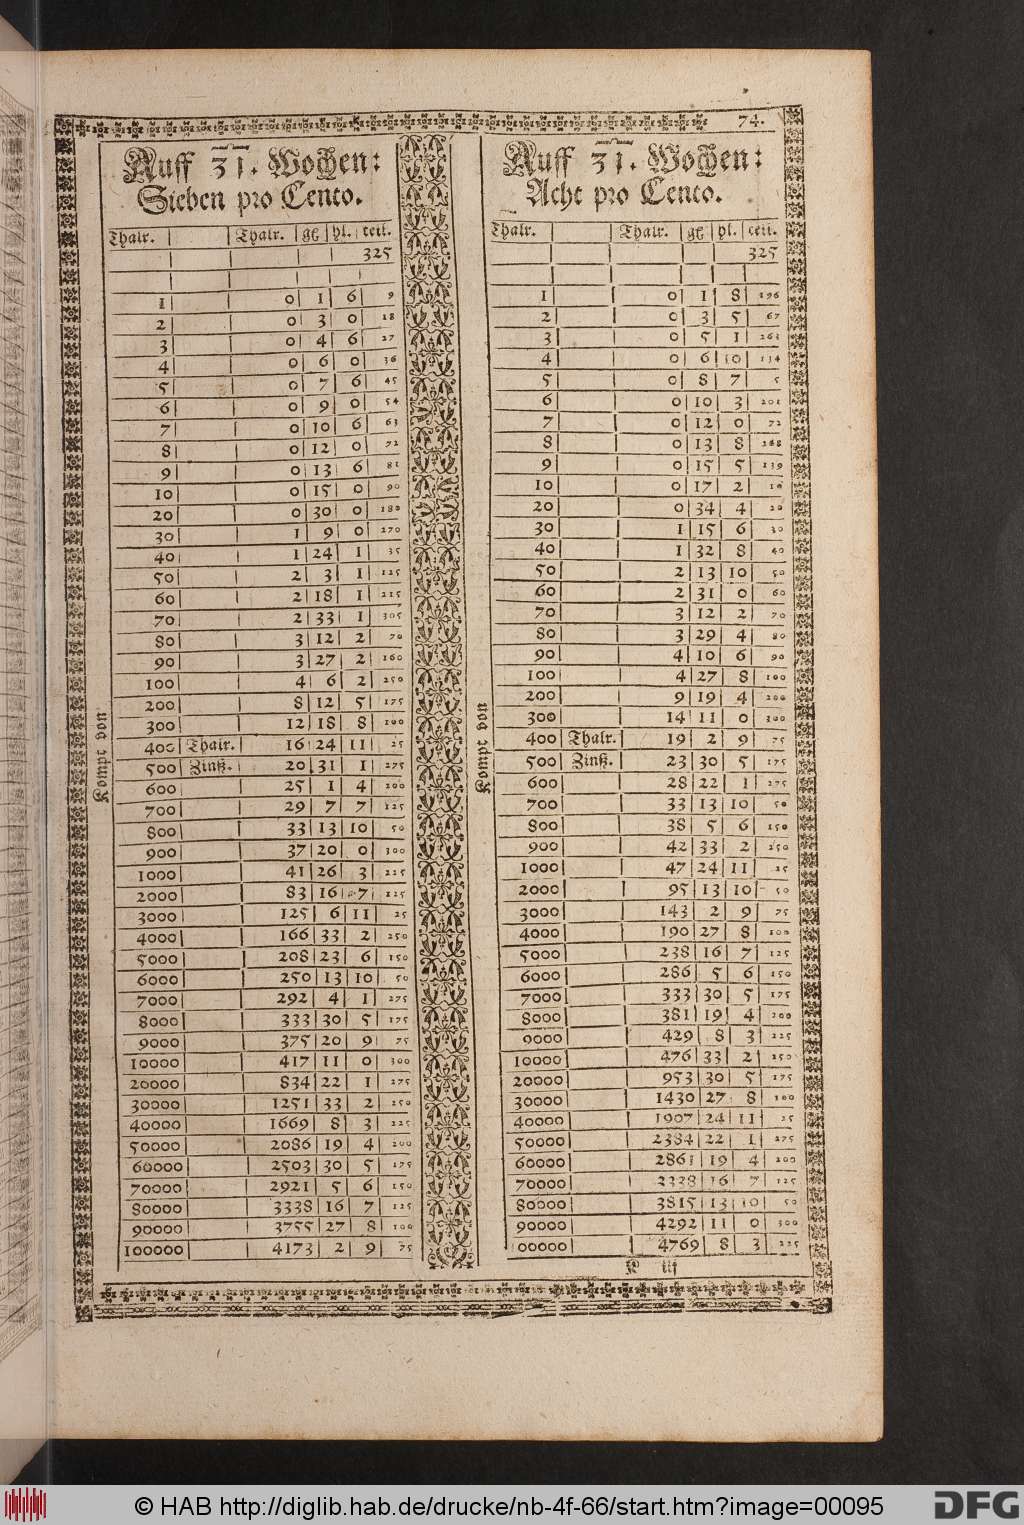 74.
Auff 31. Wochen:
Sieben pro Cento.
Thalr. Thalr. gß hl. teil.
325
1 0 1 6 9
2 0 3 0 18
3 0 4 6 27
4 0 6 0 36
5 0 7 6 45
6 0 9 0 54
7 0 10 6 63
8 0 12 0 72
9 0 13 6 81
10 0 15 0 90
20 0 30 0 180
30 1 9 0 270
40 1 24 1 35
50 2 3 1 125
60 2 18 1 215
70 2 33 1 305
80 3 12 2 70
90 3 27 2 160
100 4 6 2 250
200 8 12 5 175
300 12 18 8 100
400 Thalr. 16 24 11 25
500 Zinß. 20 31 1 275
600 25 1 4 200
700 29 7 7 125
800 33 13 10 50
900 37 20 0 300
1000 41 26 3 225
2000 83 16 7 125
3000 125 6 11 25
4000 166 33 2 250
5000 208 23 6 150
6000 250 13 10 50
7000 292 4 1 275
8000 333 30 5 175
9000 375 20 9 75
10000 417 11 0 300
20000 834 22 1 275
30000 1251 33 2 250
40000 1669 8 3 225
50000 2086 19 4 200
60000 2503 30 5 175
70000 2921 5 6 150
80000 3338 16 7 125
90000 3755 27 8 100
100000 4173 2 9 75
Kompt von
Auff 31. Wochen:
Acht pro Cento.
Thalr. Thalr. gß hl. teil.
325
1 0 1 8 196
2 0 3 5 67
3 0 5 1 263
4 0 6 10 134
5 0 8 7 5
6 0 10 3 201
7 0 12 0 72
8 0 13 8 268
9 0 15 5 139
10 0 17 2 10
20 0 34 4 20
30 1 15 6 30
40 1 32 8 40
50 2 13 10 50
60 2 31 0 60
70 3 12 2 70
80 3 29 4 80
90 4 10 6 90
100 4 27 8 100
200 9 19 4 200
300 14 11 0 300
400 Thalr. 19 2 9 75
500 Zinß. 23 30 5 175
600 28 22 1 275
700 33 13 10 50
800 38 5 6 150
900 42 33 2 250
1000 47 24 11 25
2000 95 13 10 50
3000 143 2 9 75
4000 190 27 8 100
5000 238 16 7 125
6000 286 5 6 150
7000 333 30 5 175
8000 381 19 4 200
9000 429 8 3 225
10000 476 33 2 250
20000 953 30 5 175
30000 1430 27 8 100
40000 1907 24 11 25
50000 2384 22 1 275
60000 2861 19 4 200
70000 3338 16 7 125
80000 3815 13 10 50
90000 4292 11 0 300
00000 4769 8 3 225
Kompt von
K iij
© HAB http://diglib.hab.de/drucke/nb-4f-66/start.htm?image=00095
DFG